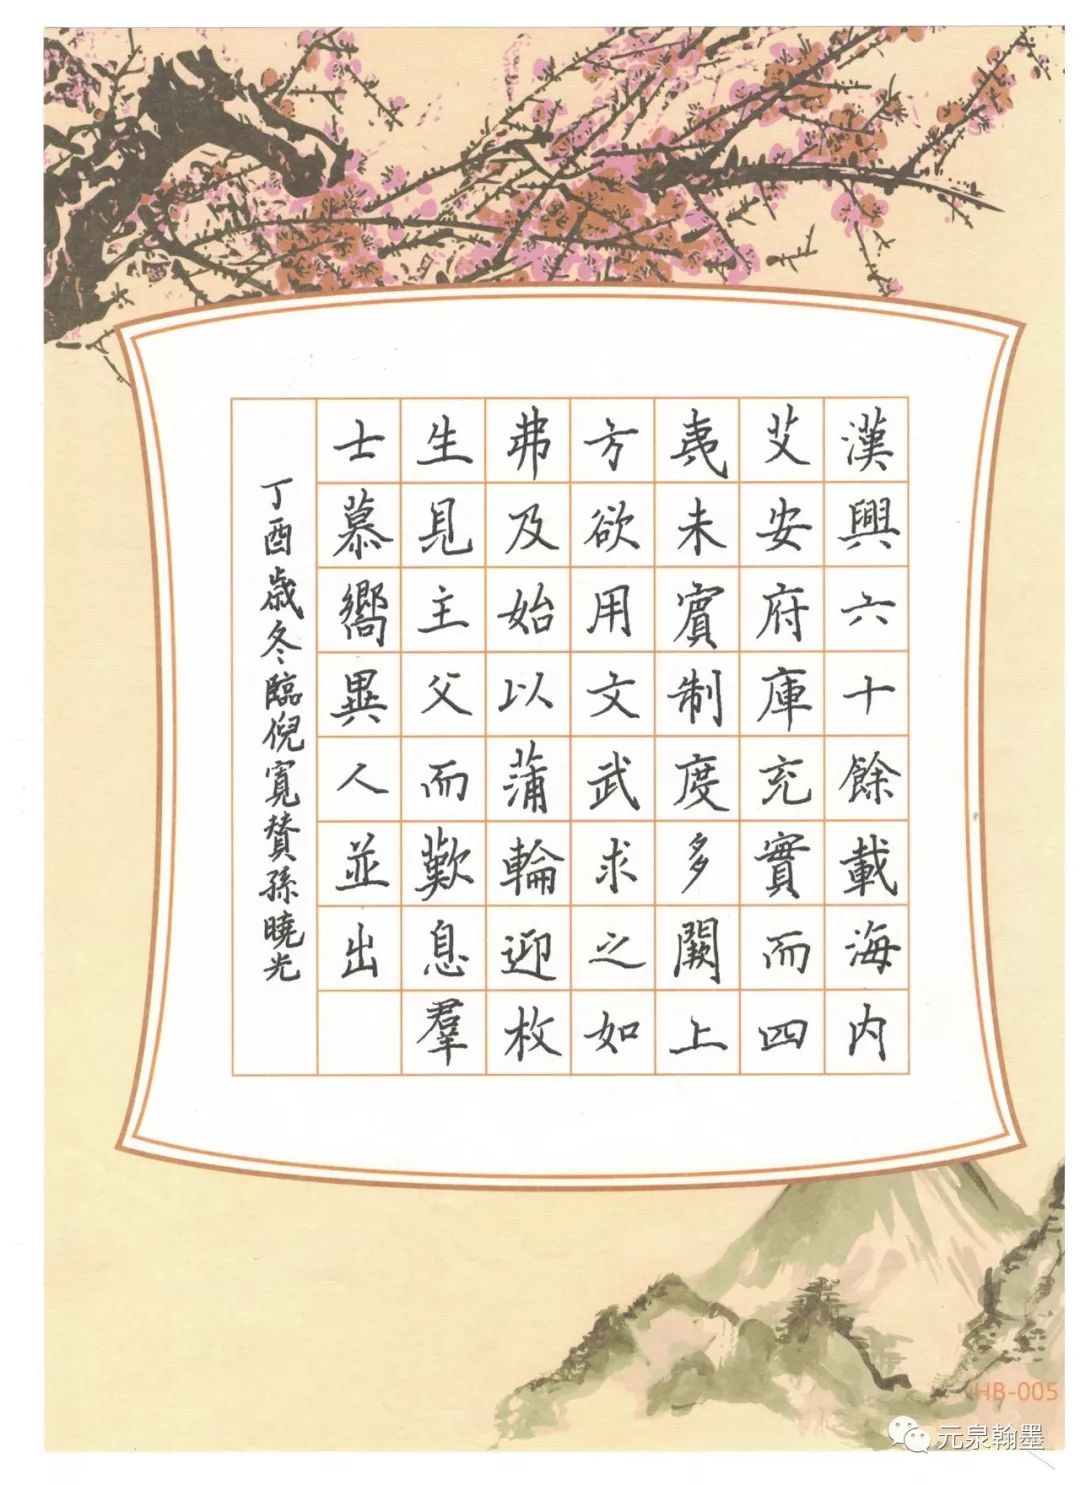 漢興六十餘載海内
艾安府庫充實而四
夷未賓制度多闕上
方欲用文武求之如
弗及始以蒲輪迎枚
生見主父而歎息羣
士慕嚮異人並出
丁酉歲冬臨倪寬贊孫曉光
HB-005
元泉翰墨